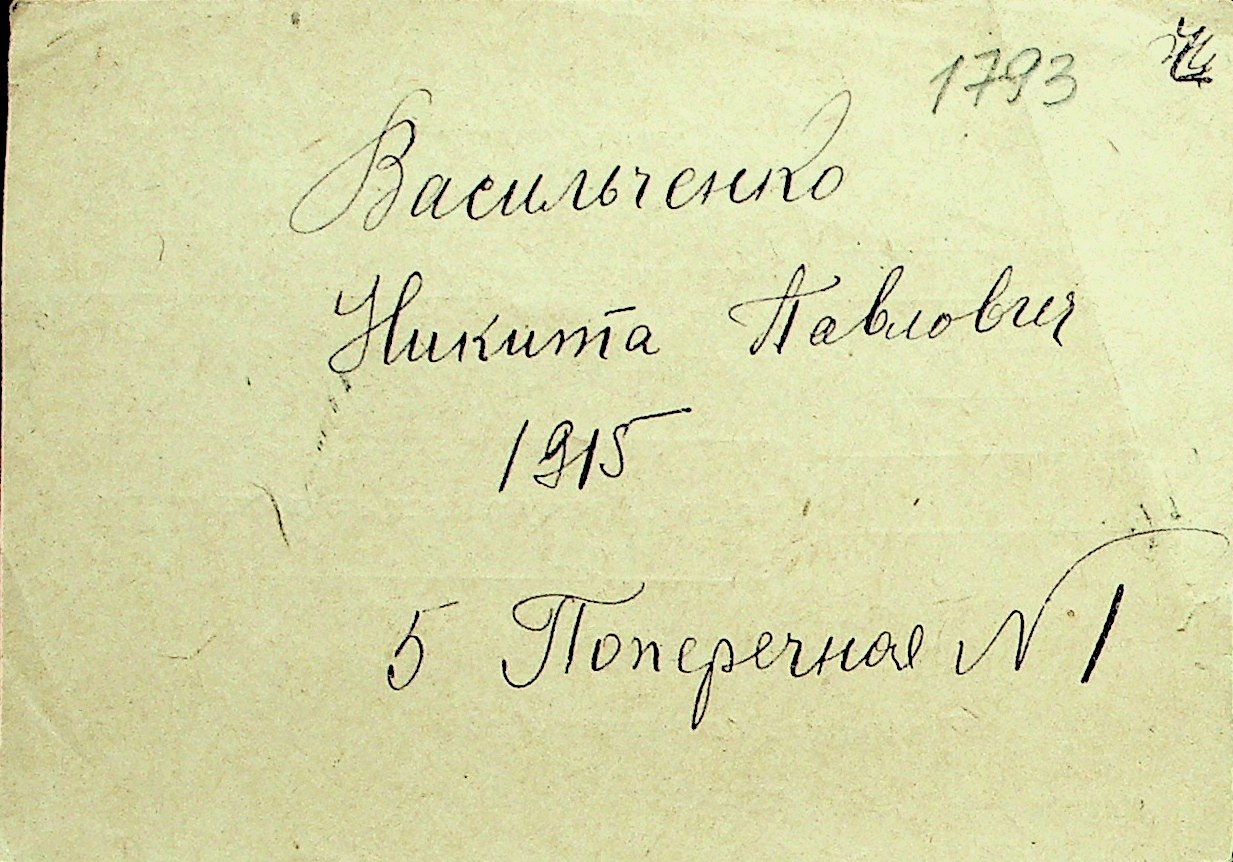 1793
Васильченко
Никита Павлович
1915
5 Поперечная N 1